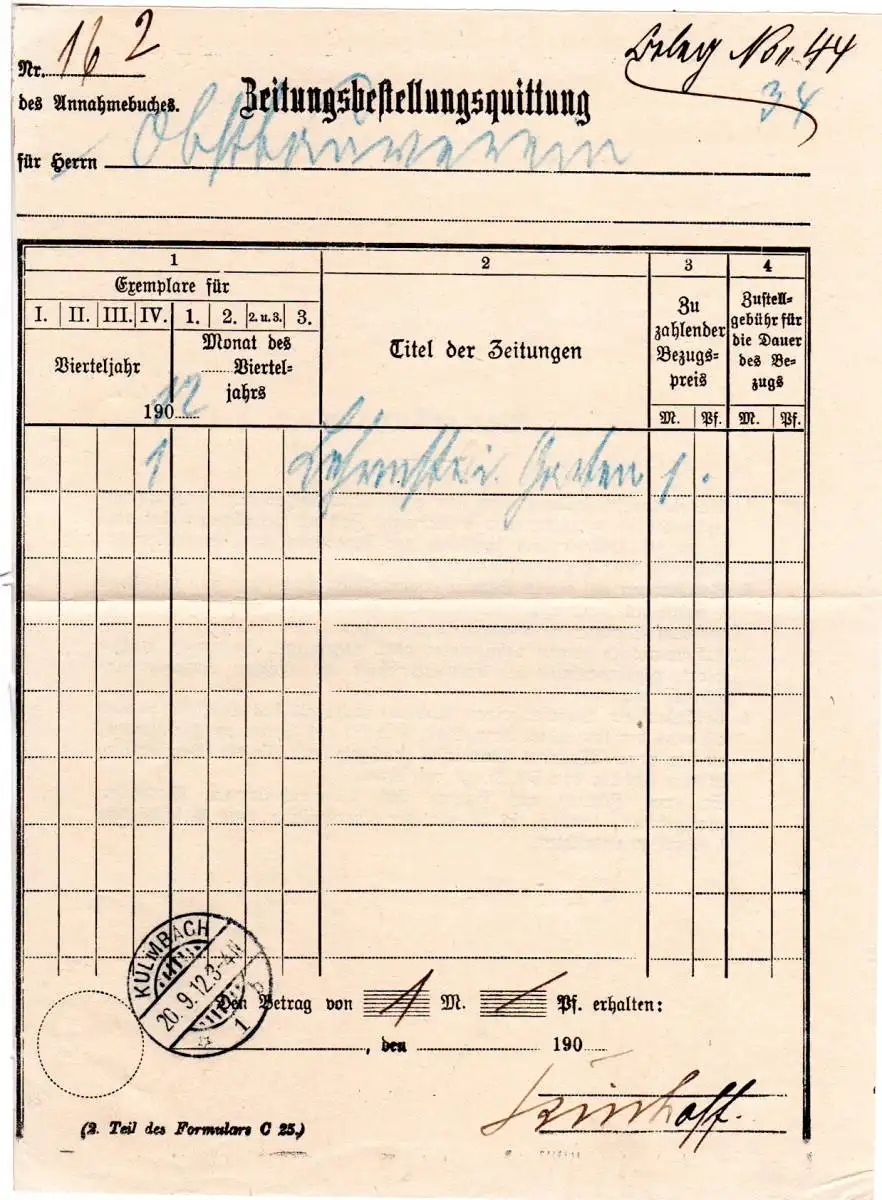 Nr. 162
Beleg No. 44
des Annahmebuches.
Zeitungsbestellungsquittung
34
für Herrn Obstbauverein
1
2
3
4
Exemplare für
I. II. III. IV. 1. 2. 2. u. 3. 3.
Vierteljahr
190 12
Monat des
Viertel-
jahrs
Titel der Zeitungen
Zu
zahlender
Bezugs-
preis
Zustell-
gebühr für
die Dauer
des Be-
zugs
M. Pf. M. Pf.
1 Garten 1.
KULMBACH
20.9.12.3-4N
1 b
Den Betrag von 1 M. / Pf. erhalten:
, den 190
(2. Teil des Formulars C 25.)